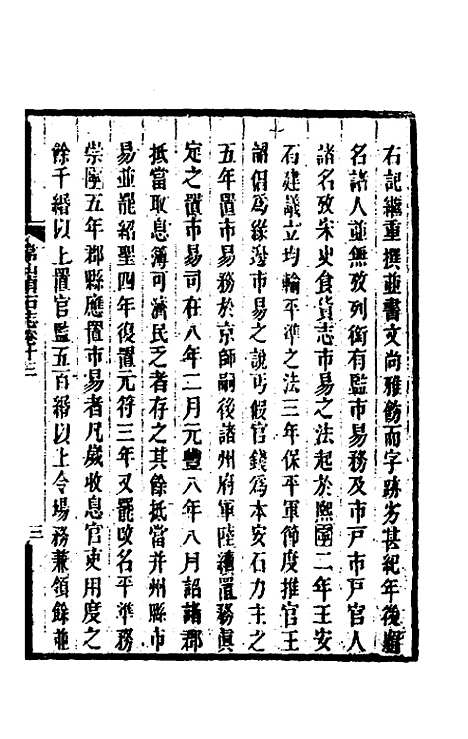 右記繼重撰並書文尚雅飭而字跡劣甚紀年後
名諸人並無攷列銜有監市易務及市戸市戸官人
諸名攷宋史食貨志市易之法起於熙寧二年王安
石建議立均輸平準之法三年保平軍節度推官王
韶倡爲緣邊市易之說丐假官錢爲本安石力主之
五年置市易務於京師嗣後諸州府軍陸續置務眞
定之置市易司在八年二月元豐八年八月詔諸郡
抵當取息簿可濟民乏者存之其餘抵當并州縣市
易並罷紹聖四年復置元符三年又罷改名平準務
崇寧五年郡縣應置市易者凡歲收息官吏用度之
餘千緡以上置官監五百緡以上令場務兼領餘並
常山貞石志卷十三
三